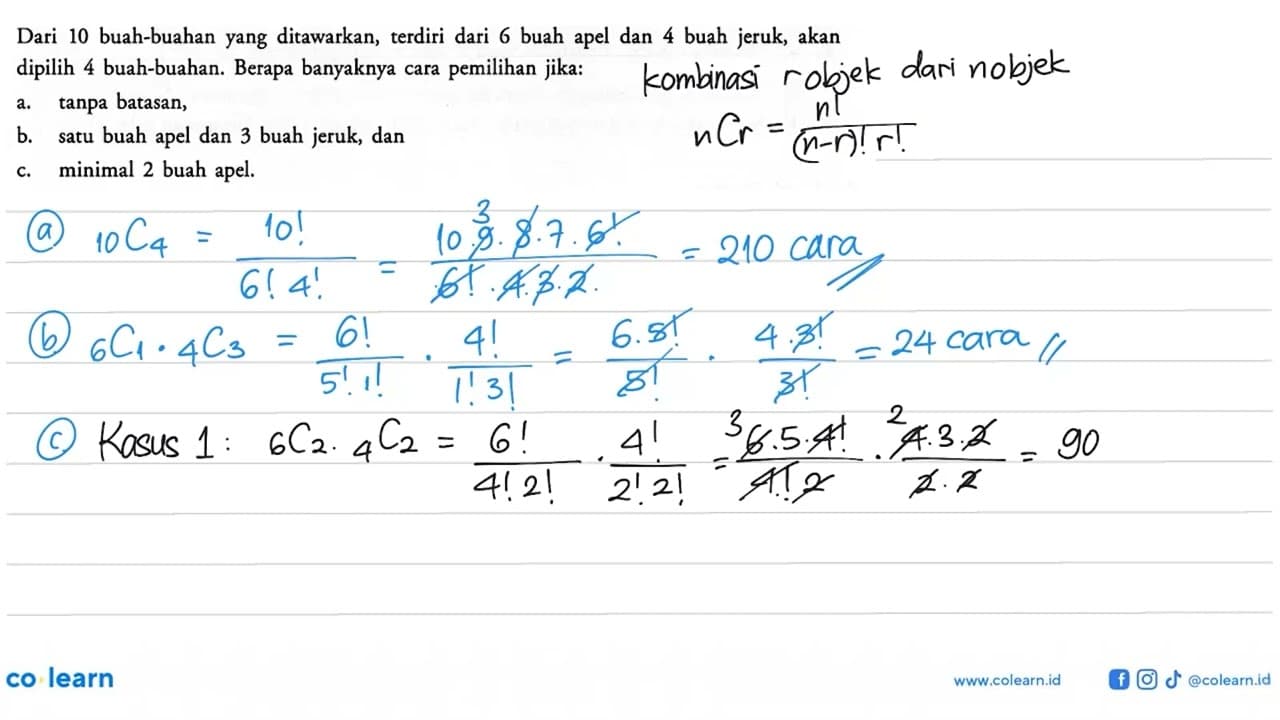 Dari 10 buah-buahan yang ditawarkan, terdiri dari 6 buah apel dan 4 buah jeruk, akan
dipilih 4 buah-buahan. Berapa banyaknya cara pemilihan jika:
a. tanpa batasan,
b. satu buah apel dan 3 buah jeruk, dan
c. minimal 2 buah apel.
kombinasi r objek dari n objek
nCr = n! / (n-r)! r!
(a) 10C4 = 10! / 6! 4! = 10 . 9 . 8 . 7 . 6! / 6! . 4 . 3 . 2 . = 210 cara
(b) 6C1 . 4C3 = 6! / 5! 1! . 4! / 1! 3! = 6 . 5! / 5! . 4 . 3! / 3! = 24 cara
(c) Kasus 1 : 6C2 . 4C2 = 6! / 4! 2! . 4! / 2! 2! = 3 6 . 5 . 4! / 4! 2 . 2 4 . 3 . 2 / 2 . 2 = 90
co learn
www.colearn.id
@colearn.id